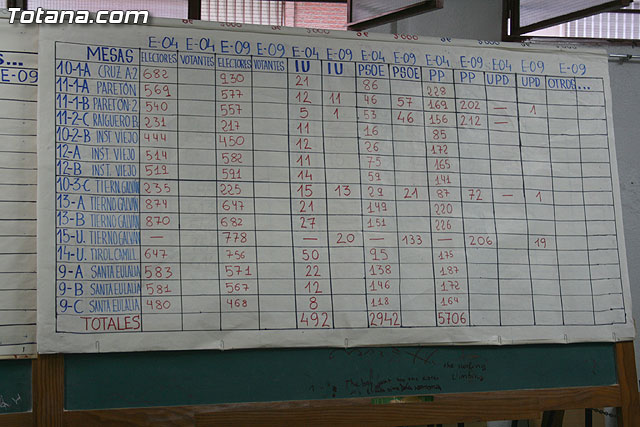 Totana.com
E-09
MESAS E-04 ELECTORES E-04 VOTANTES E-09 ELECTORES E-09 VOTANTES E-04 IU E-09 IU E-04 PSOE E-09 PSOE E-04 PP E-09 PP E-04 UPD E-09 UPD E-09 OTROS...
10-1-A CRUZ A2 682 930 21 86 228
11-1-A PARETÓN 569 577 12 11 46 57 169 202 — 1
11-1-B PARETÓN-2 540 557 5 1 53 46 156 212 —
11-2-C RAIGUERO B. 231 217 11 16 85
10-2-B INST VIEJO 444 450 12 26 172
12-A INST. VIEJO 514 582 11 75 165
12-B INST. VIEJO 519 591 14 59 141
10-3-C TIERN GALVÁN 235 225 15 13 29 21 87 72 — 1
13-A TIERNO GALVÁN 874 647 21 149 220
13-B TIERNO GALVÁN 870 682 27 151 226
15-U TIERNO GALVÁN — 778 — 20 — 133 — 206 19
14-U TIROL CAMILL. 647 756 50 95 175
9-A SANTA EULALIA 583 571 22 138 187
9-B SANTA EULALIA 581 567 12 146 172
9-C SANTA EULALIA 480 468 8 118 164
TOTALES 492 2942 5706